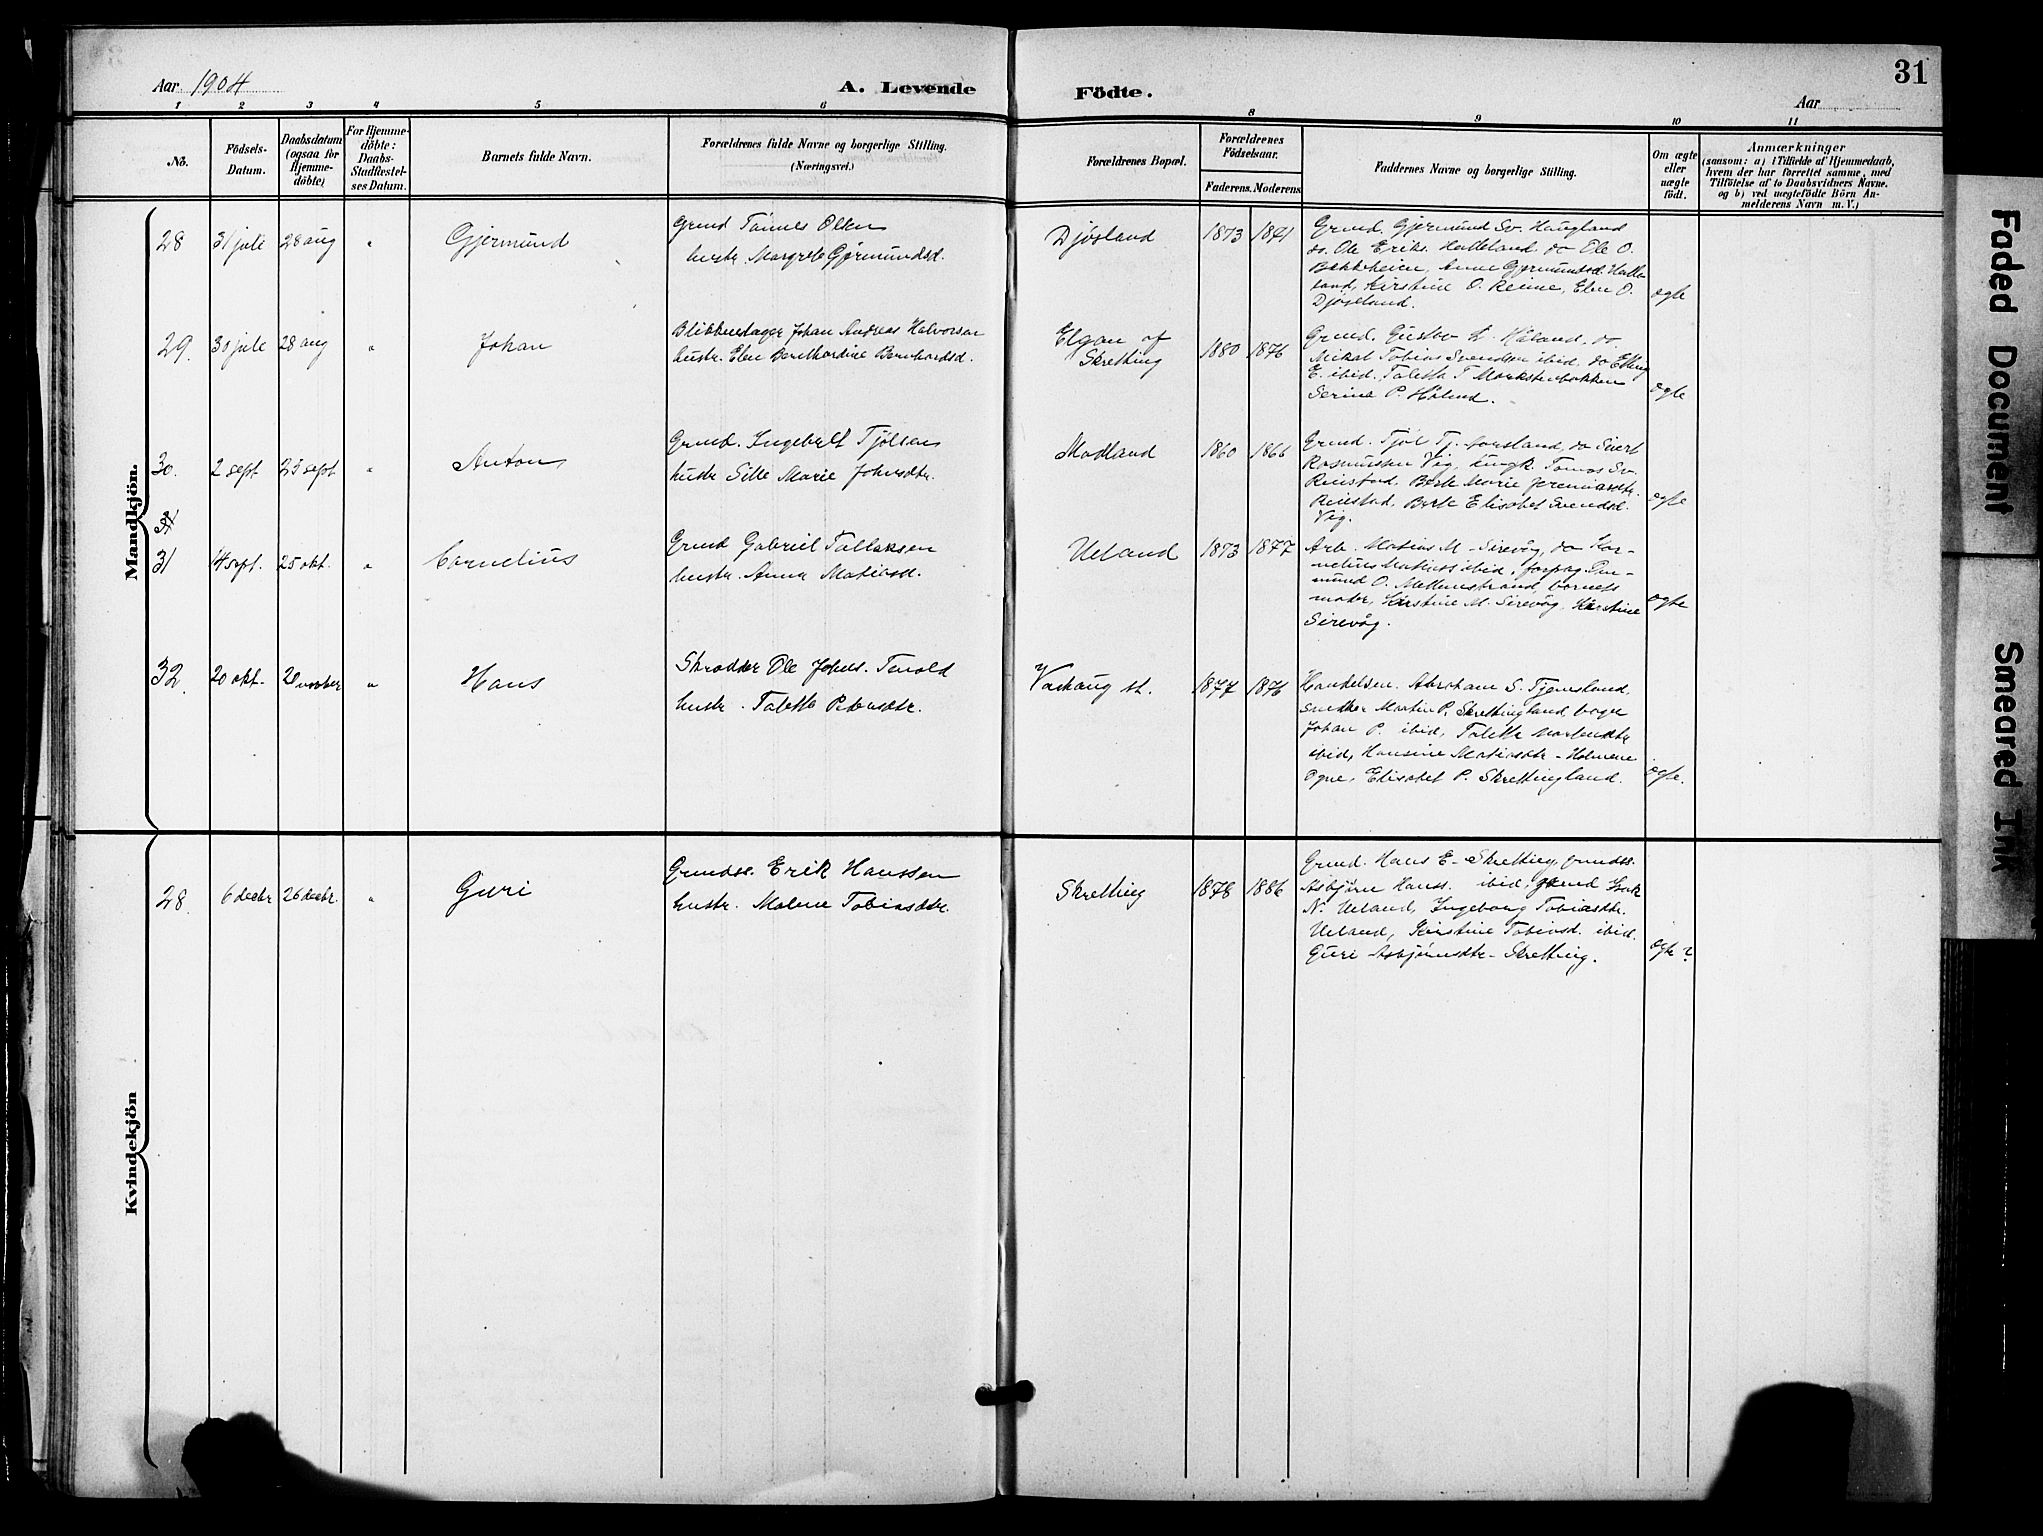 31
Aar 1904
A. Levende Födte.
Aar
1 2 3 4 5 6 8 9 10 11
No.
Födsels-Datum.
Daabsdatum (ogsaa for Hjemme-döbte)
For Hjemme-döbte: Daabs-Stadfæstel-ses Datum.
Barnets fulde Navn.
Forældrenes fulde Navne og borgerlige Stilling.
(Næringsvei.)
Forældrenes Bopæl.
Forældrenes Födselsaar.
Faderens. Moderens
Faddernes Navne og borgerlige Stilling.
Om ægte eller uægte födt.
Anmærkninger
(saasom: a) i Tilfælde af Hjemmedaab,
hvem der har forrettet samme, med
Tilföielse af to Daabsvidners Navne,
og b) ved uægtefödte Börn An-
melderens Navn m. V.)
Mandkjön.
28 31 jule 28 aug " Gjermund
Grmd Tönnes Olsen
hustr. Margrete Gjermundsd.
Djösland 1873 1871
Grmd. Gjermund Sv. Haugland
do. Ole Eriks. Hatteland do Ole O.
Bakkheien, Anne Gjermundsd. Hatte
land, Kirstine O. Reime, Elen O.
Djösland.
ægte
29. 30 jule 28 aug " Johan
Blikkenslager Johan Andreas Halvorsen
hustr. Elen Bernthardine Bernhardsd.
Elgan af
Skretting
1880 1876
Grmd. Gustav L. Håland. do
Mikal Tobias Svendsen ibid. do Elling
E. ibid. Taletta T Markstenbakken
Serina P. Håland.
ægte
30. 2 sept 25 sept " Anton
Grmd. Ingebret Tjölsen
hustr Sille Marie Johnsdtr.
Modland 1860 1866
Grmd. Tjöl Tj. Aarsland, do Sivert
Rasmussen Vig, ungk. Tomas Sv.
Reiestad. Berte Marie Jeremiasdtr.
Reiestad, Berte Elisabet Svendsd.
Vig.
ægte
31 14 sept. 25 okt. " Cornelius
Grmd Gabriel Tollaksen
hustr. Anna Matiasd.
Ueland 1873 1877
Arb. Matias M. Sirevåg, do Kor-
nelius Matiass ibid, forpag. Gun-
mund O. Mattinstrand, barnets
moder, Kirstine M. Sirevåg. Kirstine
Sirevåg.
ægte
32. 20 okt. 20 novber " Hans
Skrædder Ole Johns. Tenold
hustr. Taletta Petersdtr.
Varhaug st. 1877 1876
Handelsm. Abraham S. Tjemsland,
snedker Martin P. Skrettingland, bager
Johan P. ibid, Taletta Martendtr
ibid, Hansine Matiasdtr - Holmene
Ogne, Elisabet P. Skrettingland.
ægte.
Kvindekjön
28. 6 decbr 26 decbr. " Guri
Grmdss. Erik Hanssen
hustr. Malene Tobiasdtr.
Skretting 1878 1886
Grmd. Hans E. Skretting, grmdss.
Asbjörn Hanss. ibid, grmd Isak
N. Ueland, Ingeborg Tobiasdtr.
Ueland, Kirstine Tobiasd. ibid.
Guri Asbjörnsdtr - Skretting.
ægte?
Faded Document
Smeared Ink